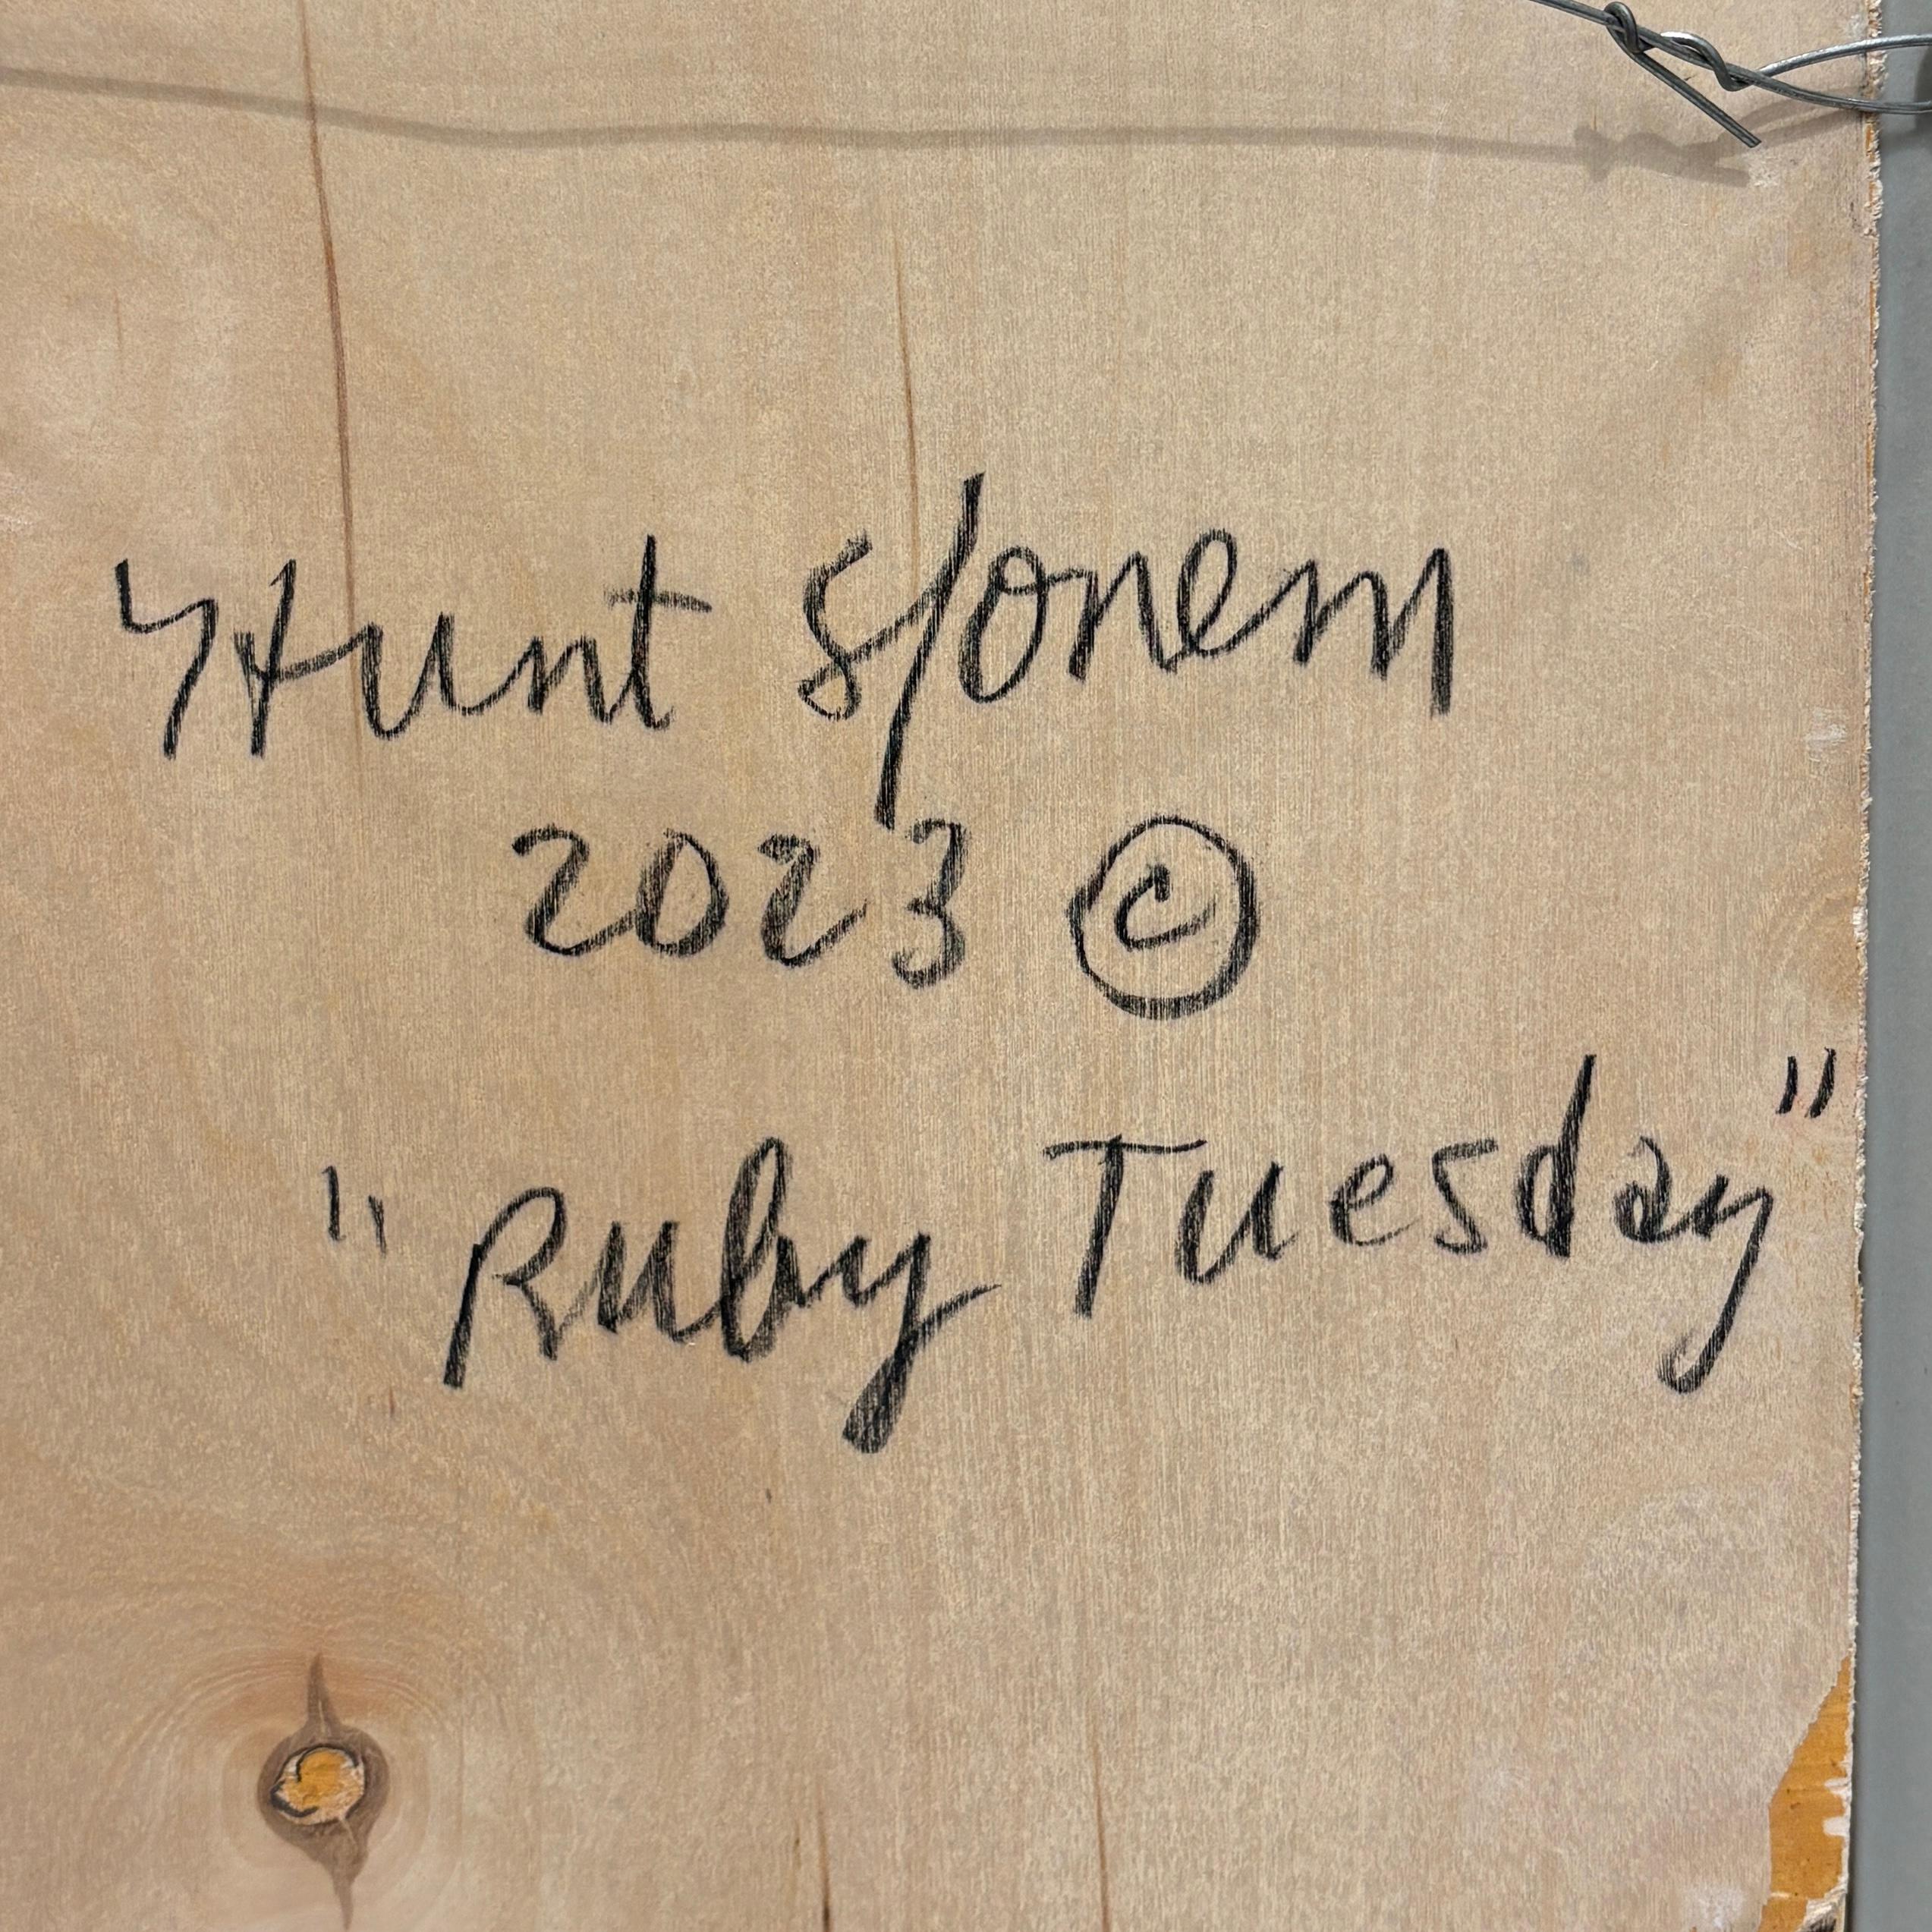 Hunt Slonem
2023 ©
"Ruby Tuesday"